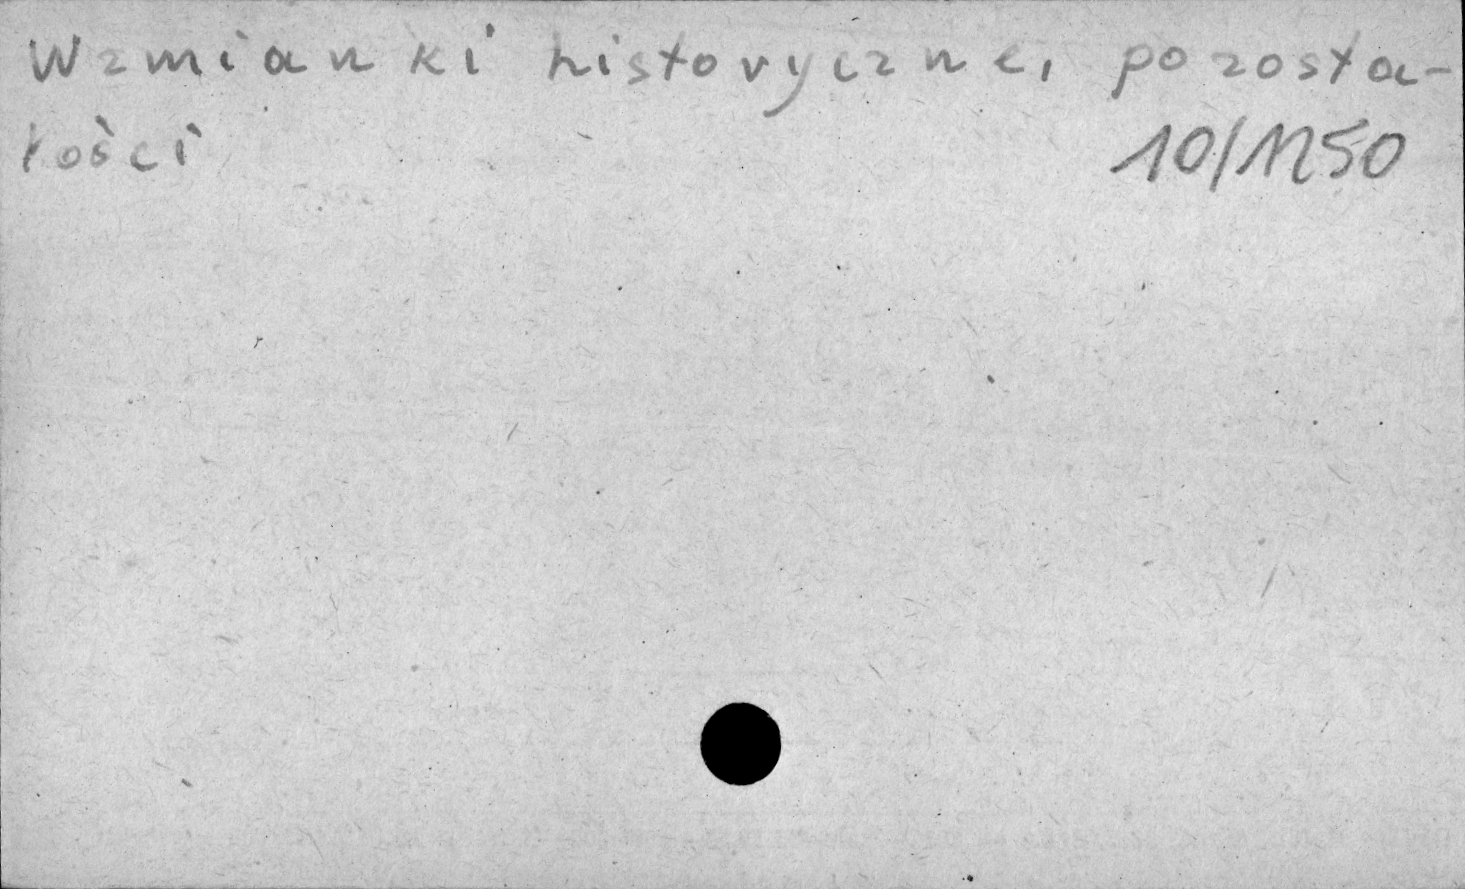 Wzmianki historyczne, pozosta-
łości
10/1150